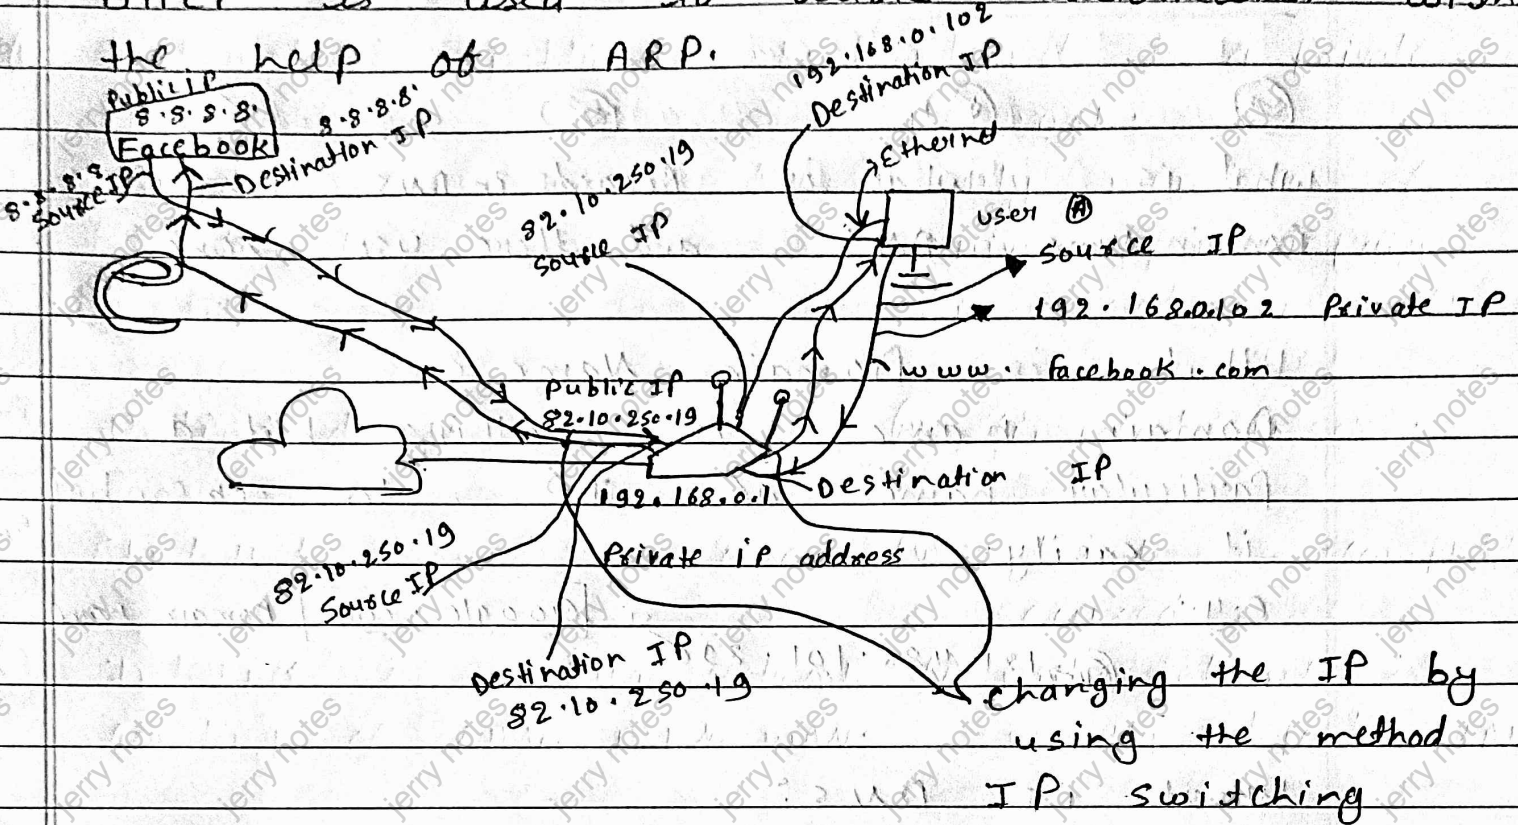 the help of ARP.
Public IP
8.8.8.8.
Facebook
8.8.8.8.
Destination IP
8.8.8.8
Source IP
82.10.250.19
Source IP
192.168.0.102
Destination IP
Ethernet
user A
Source IP
192.168.0.102 Private IP
www.facebook.com
Public IP
82.10.250.19
Destination IP
192.168.0.1
Private ip address
82.10.250.19
Source IP
Destination IP
82.10.250.19
Changing the IP by
using the method
IP. switching
jerry notes